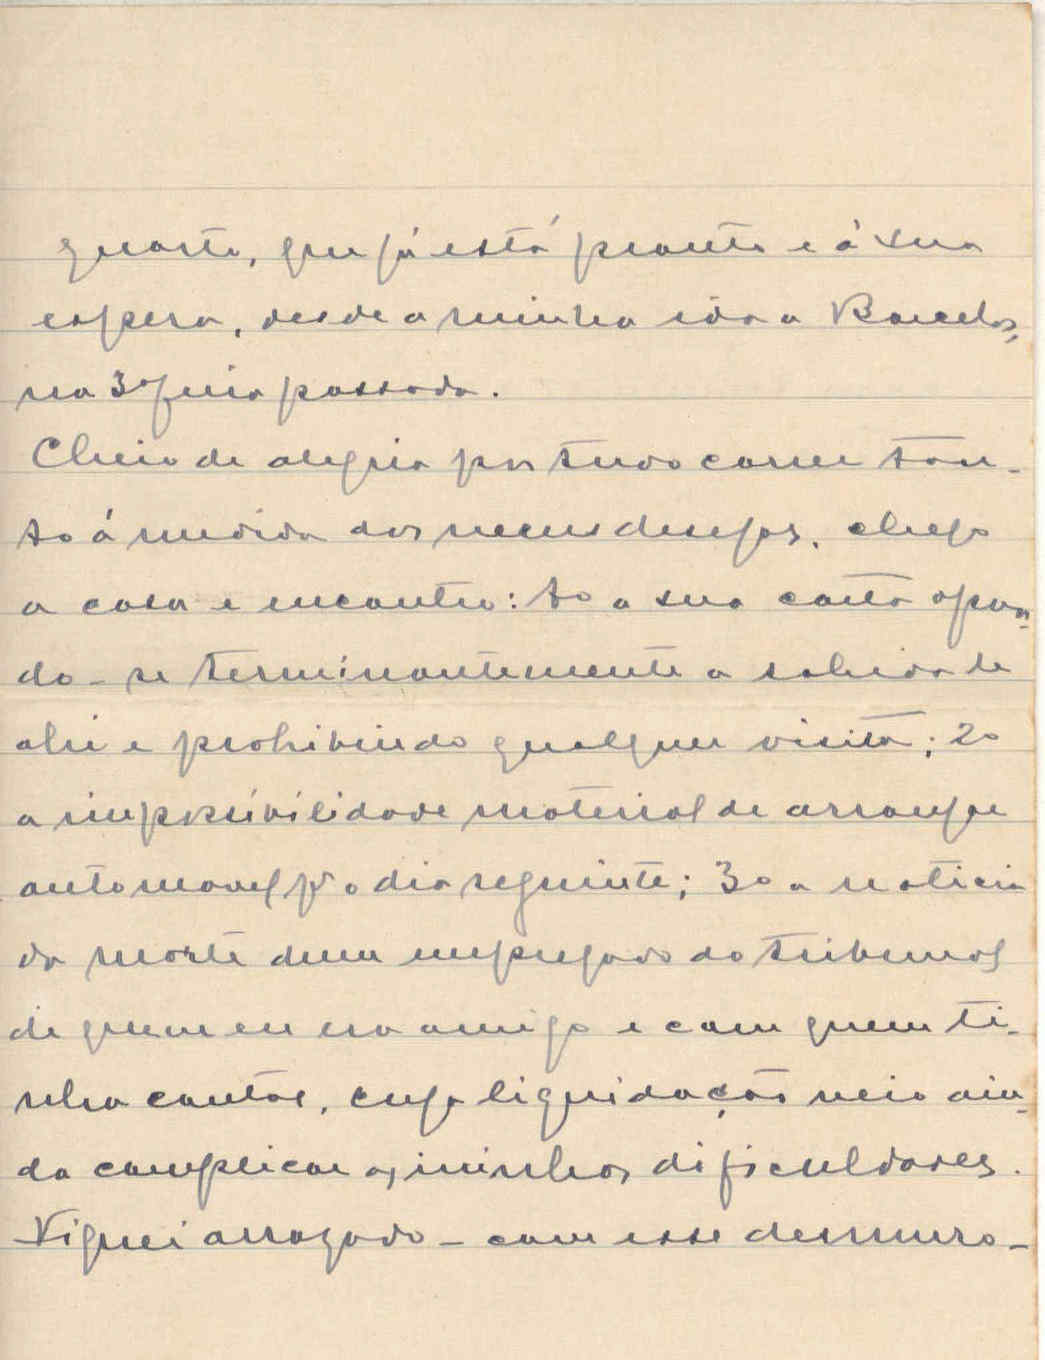 quarto, que já está prouto e á sua
espera, desde a minha ida a Barcelos,
na 3ª feira passada.
Cheio de alegria por tudo correr tan-
to á medida dos meus desejos, chego
a casa e encontro: 1º a sua carta opon-
do-se terminantemente a sahida de
ahi e prohibindo qualquer visita; 2º
a impossibilidade material de arranjar
automovel pª o dia seguinte; 3º a noticia
da morte dum empregado do tribunal
de quem eu era amigo e com quem ti-
nha contas, cuja liquidação veio ain-
da complicar as minhas dificuldades.
Fiquei arrazado - com esse desmoro-